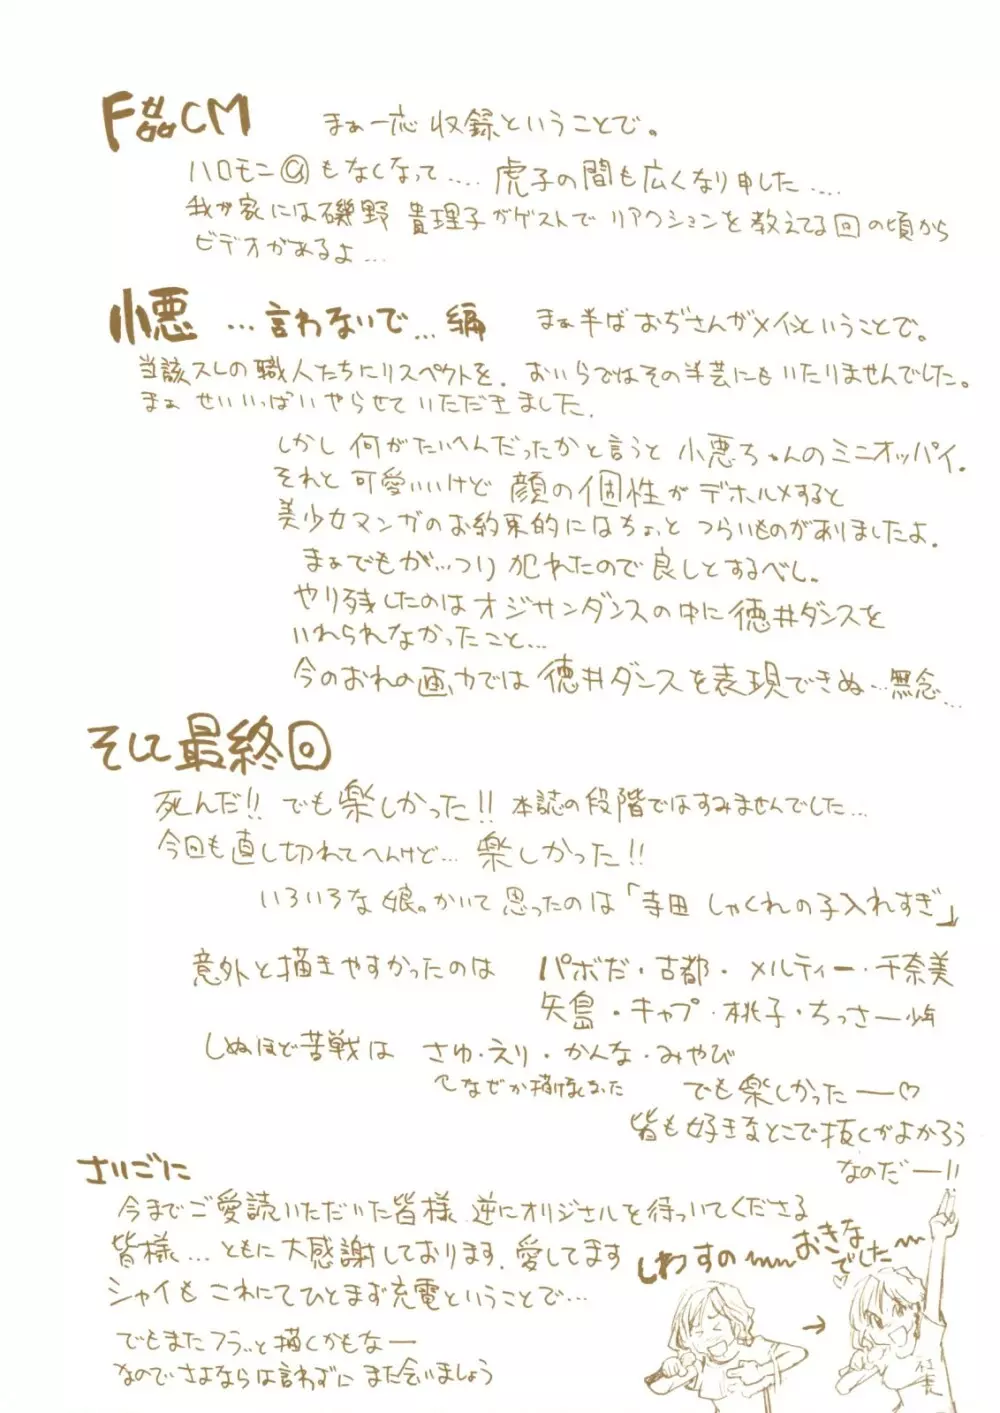 F姦CM まぁ一応収録ということで。
ハロモニ@もなくなって.... 虎子の間も広くなり申した....
我が家には磯野貴理子がゲストでリアクションを教えてる回の頃から
ビデオがあるよ...
小悪 ...言わないで...編 まぁ半ばおぢさんがメインということで。
当該スレの職人たちにリスペクトを。おいらではその半芸にもいたりませんでした。
まぁ せいいっぱいやらせていただきました.
しかし何がたいへんだったかと言うと小悪ちゃんのミニオッパイ.
それと可愛いいけど顔の個性がデホルメすると
美少女マンガのお約束的にはちょっとつらいものがありましたよ.
まぁでもが...っつり犯れたので良しとするべし。
やり残したのはオジサンダンスの中に徳井ダンスを
いれられなかったこと...
今のおれの画力では徳井ダンスを表現できぬ...無念...
そして最終回
死んだ!! でも楽しかった!! 本誌の段階ではすみませんでした...
今回も直し切れてへんけど... 楽しかった!!
いろいろな娘。かいて思ったのは「寺田 しゃくれの子入れすぎ」
意外と描きやすかったのは パボだ・古都・メルティー・千奈美
矢島・キャプ・桃子・ちっさー少年
しぬほど苦戦は さゆ・えり・かんな・みやび
なぜか
でも楽しかったー♡
皆も好きなとこで抜くがよかろう
なのだー!!
さいごに
今までご愛読いただいた皆様 逆にオリジナルを待っていてくださる
皆様...ともに大感謝しております. 愛してます
シャイも これにてひとまず充電ということで...
でもまたフラッと描くかもなー
なのでさよならは言わずに また会いましょう
しわすの〜
おきな
でした〜